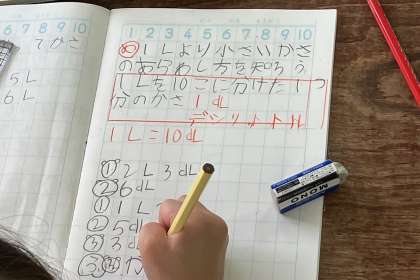 てかさ
5L
6L
1 2 3 4 5 6 7 8 9 10
め 1Lより小さいかさ
のあらわし方を知ろう
1Lを10こに分けた1つ
分のかさ 1dL
デシリットル
1L=10dL
① 2L3dL
② 6dL
① 1L
② 5d
③ 3d
MONO